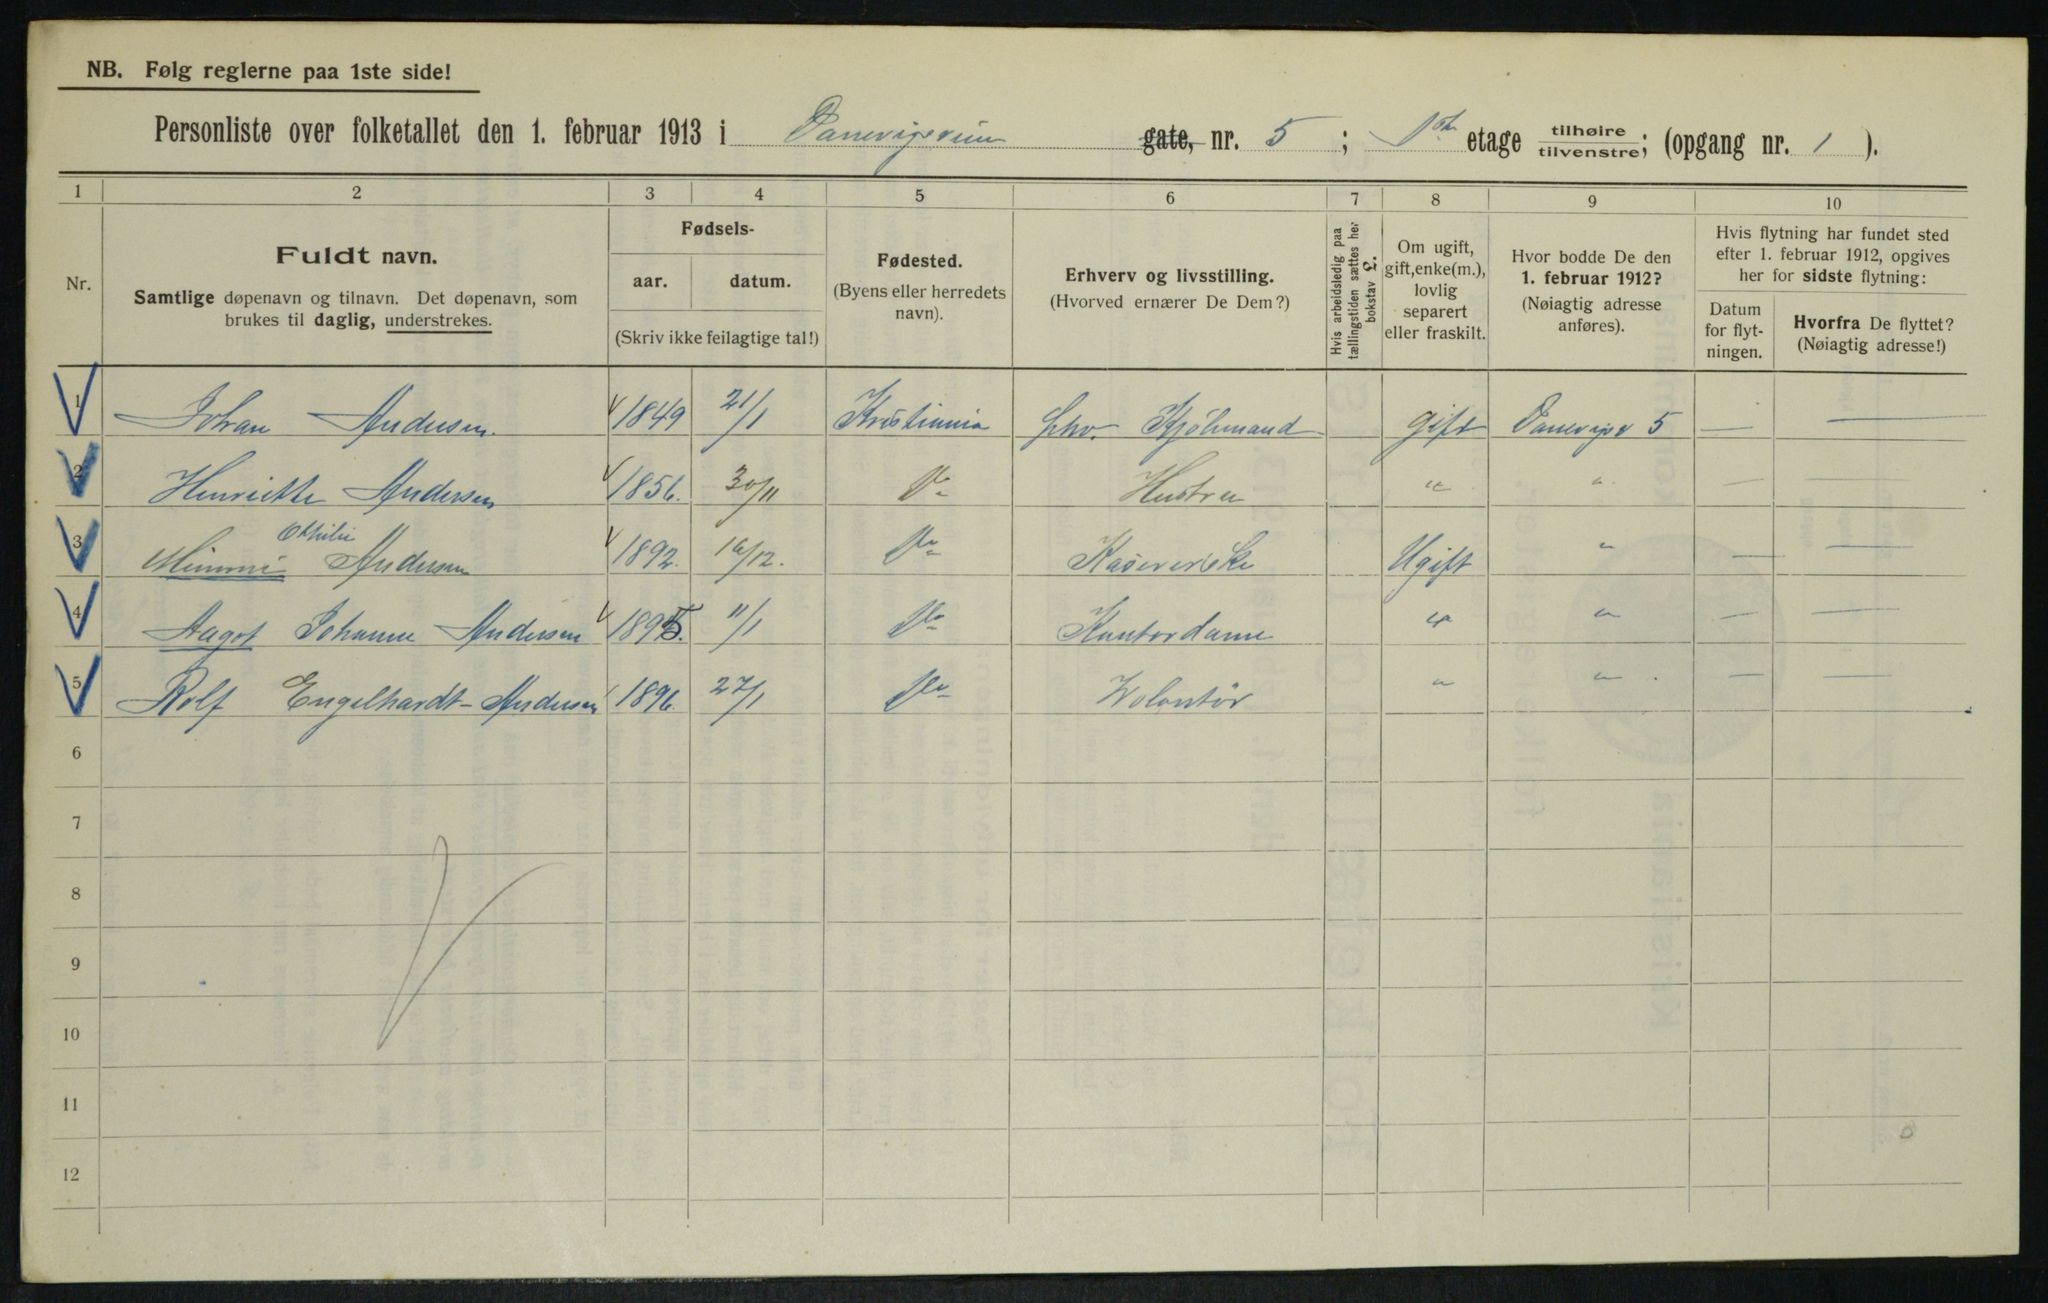 NB. Følg reglerne paa 1ste side!
Personliste over folketallet den 1. februar 1913 i Danevigsveien gate, nr. 5 ; 1ste etage tilhøire/tilvenstre; (opgang nr. 1 ).
1 2 3 4 5 6 7 8 9 10
Nr.
Fuldt navn.
Samtlige døpenavn og tilnavn. Det døpenavn, som
brukes til daglig, understrekes.
Fødsels-
aar. datum.
(Skriv ikke feilagtige tal!)
Fødested.
(Byens eller herredets
navn).
Erhverv og livsstilling.
(Hvorved ernærer De Dem?)
Hvis arbeidsledig paa
tællingstiden sættes her
bokstav L.
Om ugift,
gift, enke(m.),
lovlig
separert
eller fraskilt.
Hvor bodde De den
1. februar 1912?
(Nøiagtig adresse
anføres).
Hvis flytning har fundet sted
efter 1. februar 1912, opgives
her for sidste flytning:
Datum
for flyt-
ningen.
Hvorfra De flyttet?
(Nøiagtig adresse!)
1 Johan Andersen. 1849 21/1 Kristiania fhv. Kjøbmand gift Danevigsv 5 — —
2 Henriette Andersen 1856. 30/11 Do Hustru " " — —
3 Mimmi Othilie Andersen 1892. 16/12. Do Kasererske Ugift " — —
4 Aagot Johanne Andersen 1895. 11/1 Do Kontordame " " — —
5 Rolf Engelhardt-Andersen 1896. 27/1 Do Volontør " " — —
6
7
8
9
10
11
12